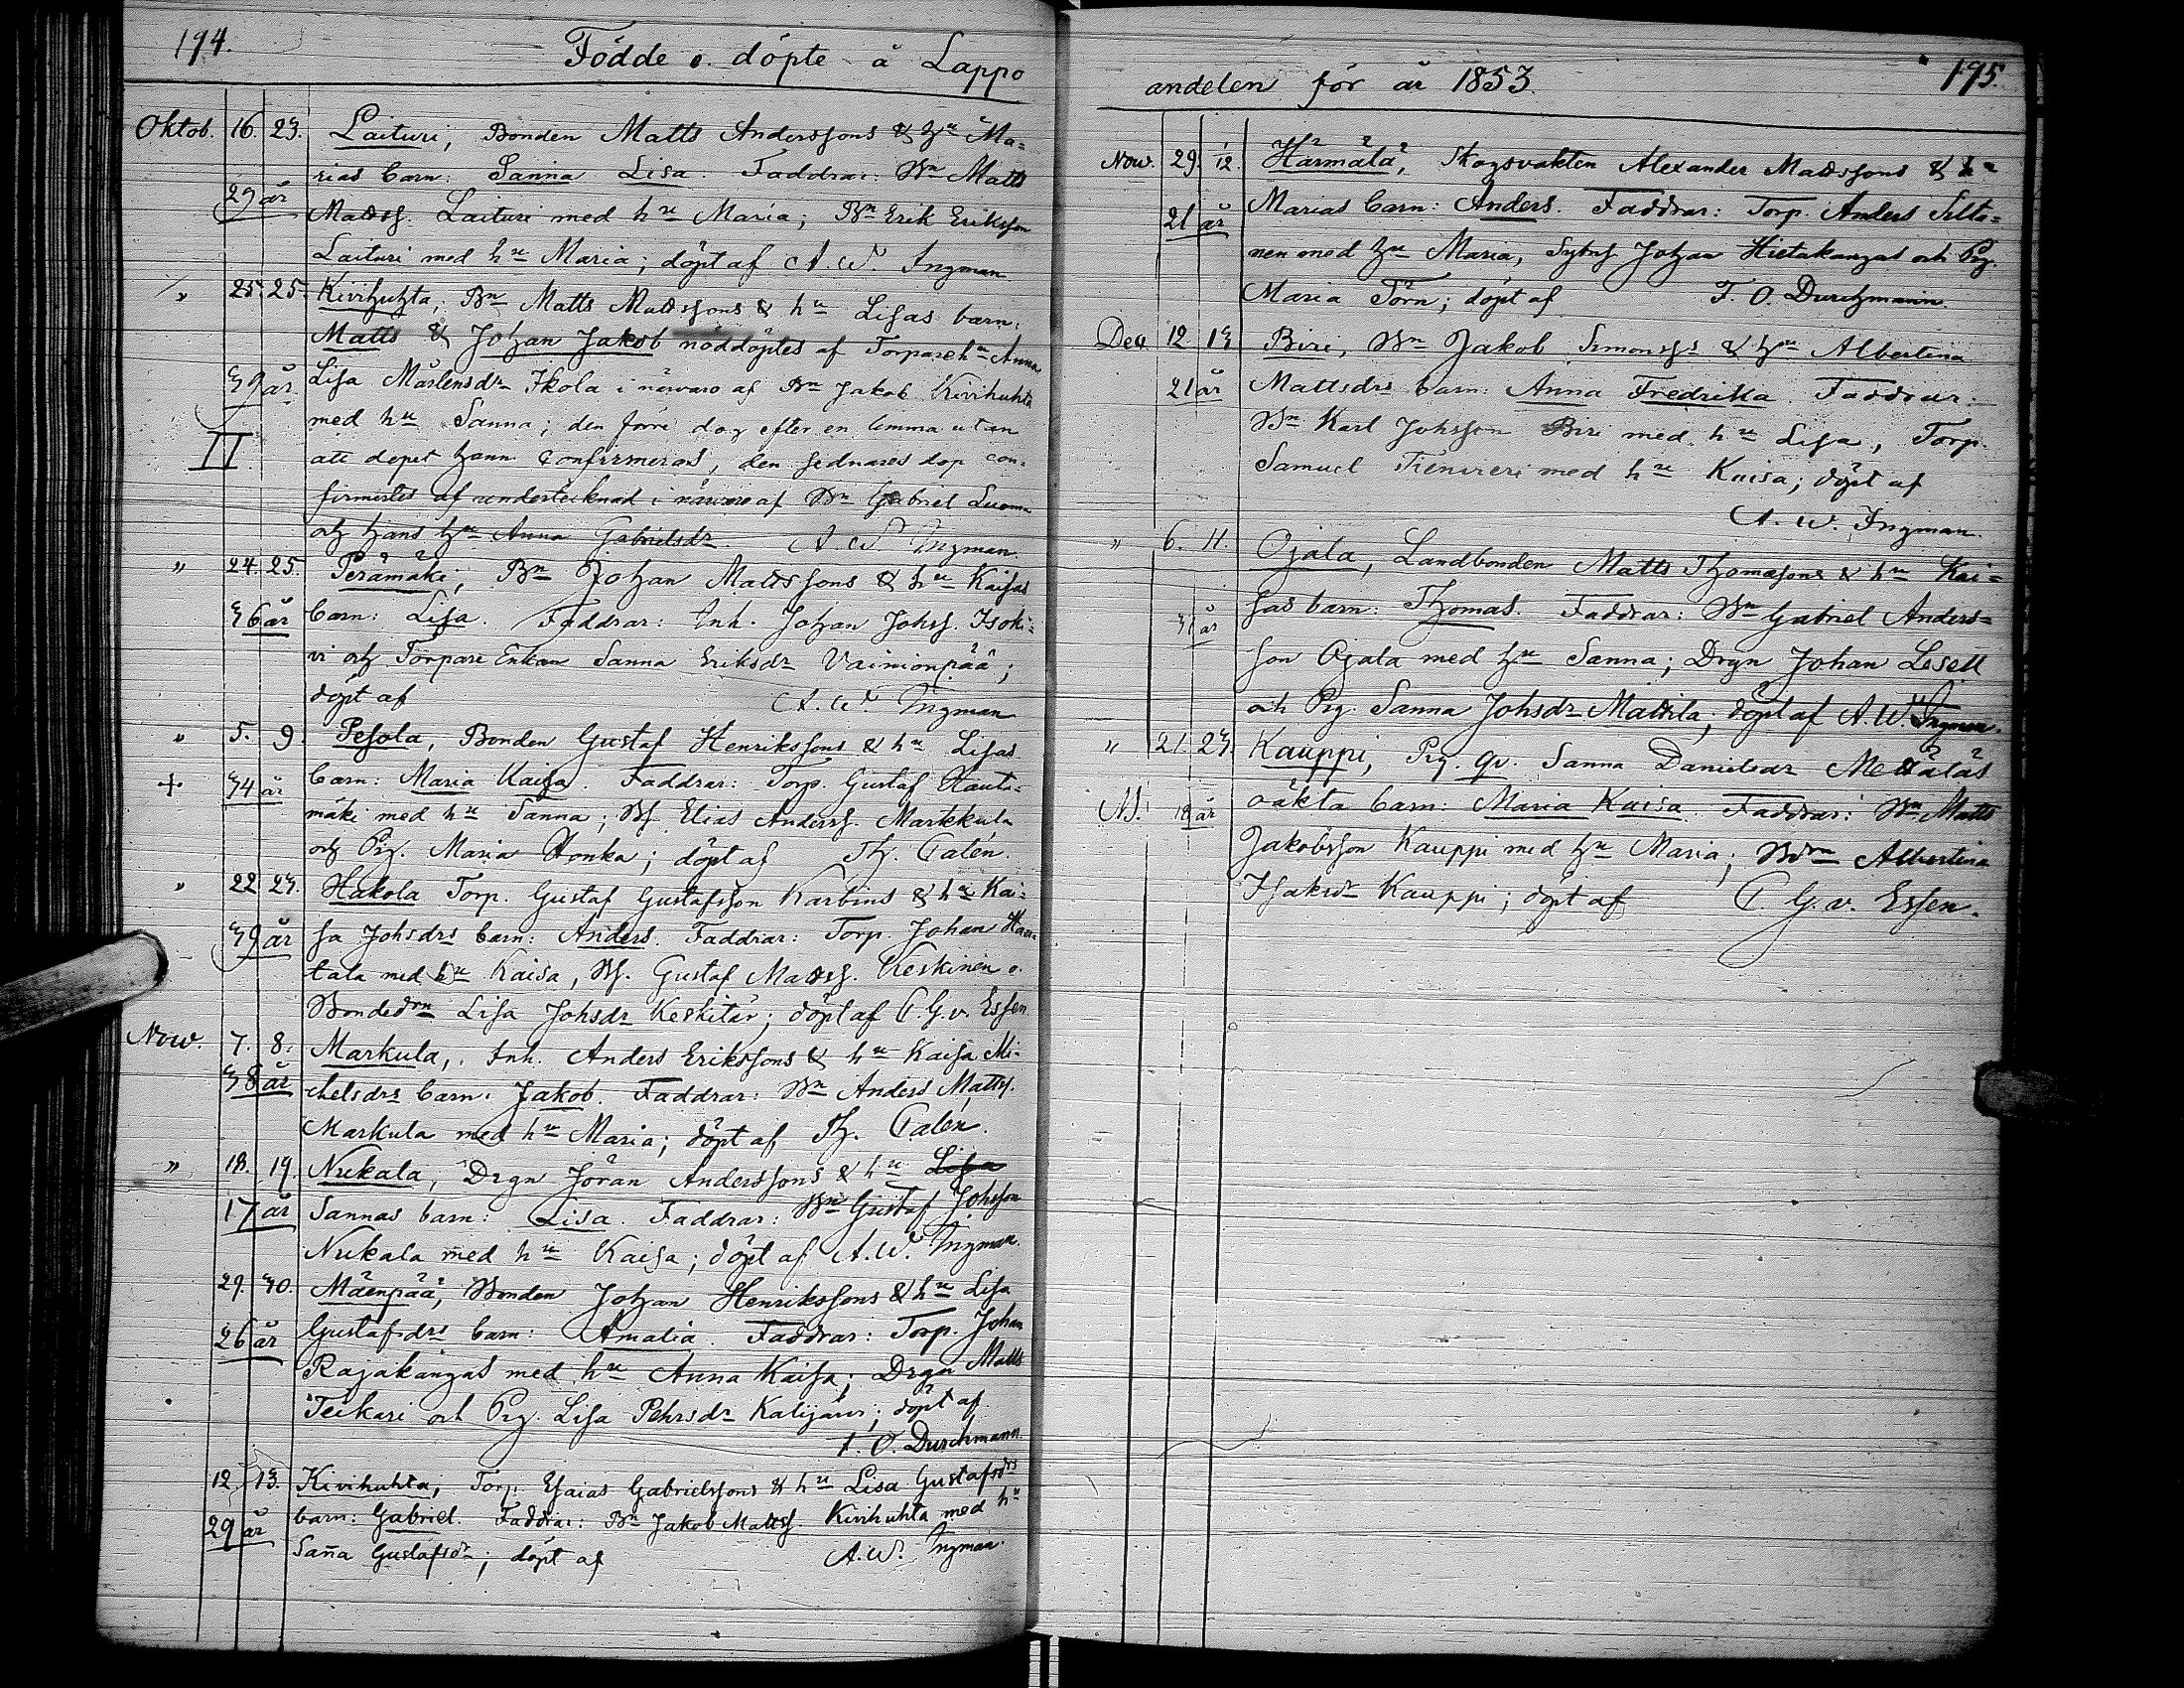 194.
Födde o. döpte å Lappo
Oktob. 16. 23. Laituri, Bonden Matts Anderssons & hu Ma=
rias barn: Sanna Lisa. Faddrar: Bn Matts
29 år Mattss. Laituri med hu Maria; Bn Erik Eriksson
Laituri med hu Maria; döpt af A. W. Ingman
" 25. 25. Kivihuhta, Bn Matts Mattssons & hu Lisas barn:
Matts & Johan Jakob nöddöptes af Torpare hu Anna
39 år. Lisa Mårtensdr Ikola i närvaro af Bn Jakob Kivihuhta
med hu Sanna; den förre dog efter en timma utan
II att dopet hann confirmeras, den sednares dop con=
firmertes af undertecknad i närvaro af Bn Gabriel Luoma
och hans hu Anna Gabrielsdr. A. W. Ingman.
" 24. 25. Perämäki, Bn Johan Mattssons & hu Kaisas
36 år barn: Lisa. Faddrar: Inh. Johan Johss. Isoki=
vi och Torpare Enkan Sanna Eriksdr Vainionpää;
döpt af A. W. Ingman
" 5. 9. Pesola, Bonden Gustaf Henrikssons & hu Lisas
+ 34 år barn: Maria Kaisa. Faddrar: Torp. Gustaf Rauta=
mäki med hu Sanna; Bs Elias Anderss. Markkula
och Pig. Maria Honka; döpt af Th. Calén.
" 22. 23. Hakola Torp. Gustaf Gustafsson Karbins & hu Kai=
39 år sa Johsdrs barn: Anders. Faddrar: Torp. Johan Hau=
tala med hu Kaisa, Bs. Gustaf Mattss. Keskinen o.
Bondedrn Lisa Johsdr Keskitär; döpt af C. G. v. Essen
Now. 7. 8. Markula, Inh. Anders Erikssons & hu Kaisa Mi=
38 år chelsdrs barn: Jakob. Faddrar: Bn Anders Mattss.
Markula med hu Maria; döpt af Th. Calén.
" 18. 19. Nukala, Drgn Jöran Anderssons & hu Lisa
17 år Sannas barn: Lisa. Faddrar: Bn Gustaf Johsson
Nukala med hu Kaisa; döpt af A. W. Ingman.
29. 30. Mäenpää, Bonden Johan Henrikssons & hu Lisa
26 år Gustafsdrs barn: Amalia. Faddrar: Torp. Johan
Rajakangas med hu Anna Kaisa; Drgn Matts
Teikari och Pig. Lisa Pehrsdr Kalijärvi; döpt af
F. O. Durchmann.
12. 13. Kivihuhta, Torp. Esaias Gabrielssons & hu Lisa Gustafsdrs
29 år barn: Gabriel. Faddrar: Bn Jakob Mattss. Kivihuhta med hu
Sanna Gustafsdr; döpt af A. W. Ingman.
andelen för år 1853. 195.
Now. 29. 1/12. Härmälä, Skogsvakten Alexander Mattssons & hu
21 år Marias barn: Anders. Faddrar: Torp. Anders Silta=
nen med hu Maria, Johan Hietakangas och Pig.
Maria Törn; döpt af F. O. Durchmann.
Dec. 12. 13 Biri, Bn Jakob Simonss & hu Albertina
21 år Mattsdrs barn: Anna Fredrika. Faddrar:
Bn Karl Johsson Biri med hu Lisa, Torp.
Samuel med hu Kaisa; döpt af
A. W. Ingman.
" 6. 11. Ojala, Landbonden Matts Thomasons & hu Kai=
31 år sas barn: Thomas. Faddrar: Bn Gabriel Anders=
son Ojala med hu Sanna; Drgn Johan Lesell
och Pig. Sanna Johsdr Mattila; döpt af A. W. Ingman.
" 21. 23. Kauppi, Pig. qv. Sanna Danielsdr Metäläs
N. 18 år oäkta barn: Maria Kaisa. Faddrar: Bn Matts
Jakobsson Kauppi med hu Maria; Bdrn Albertina
Isaksdr Kauppi; döpt af C. G. v. Essen.